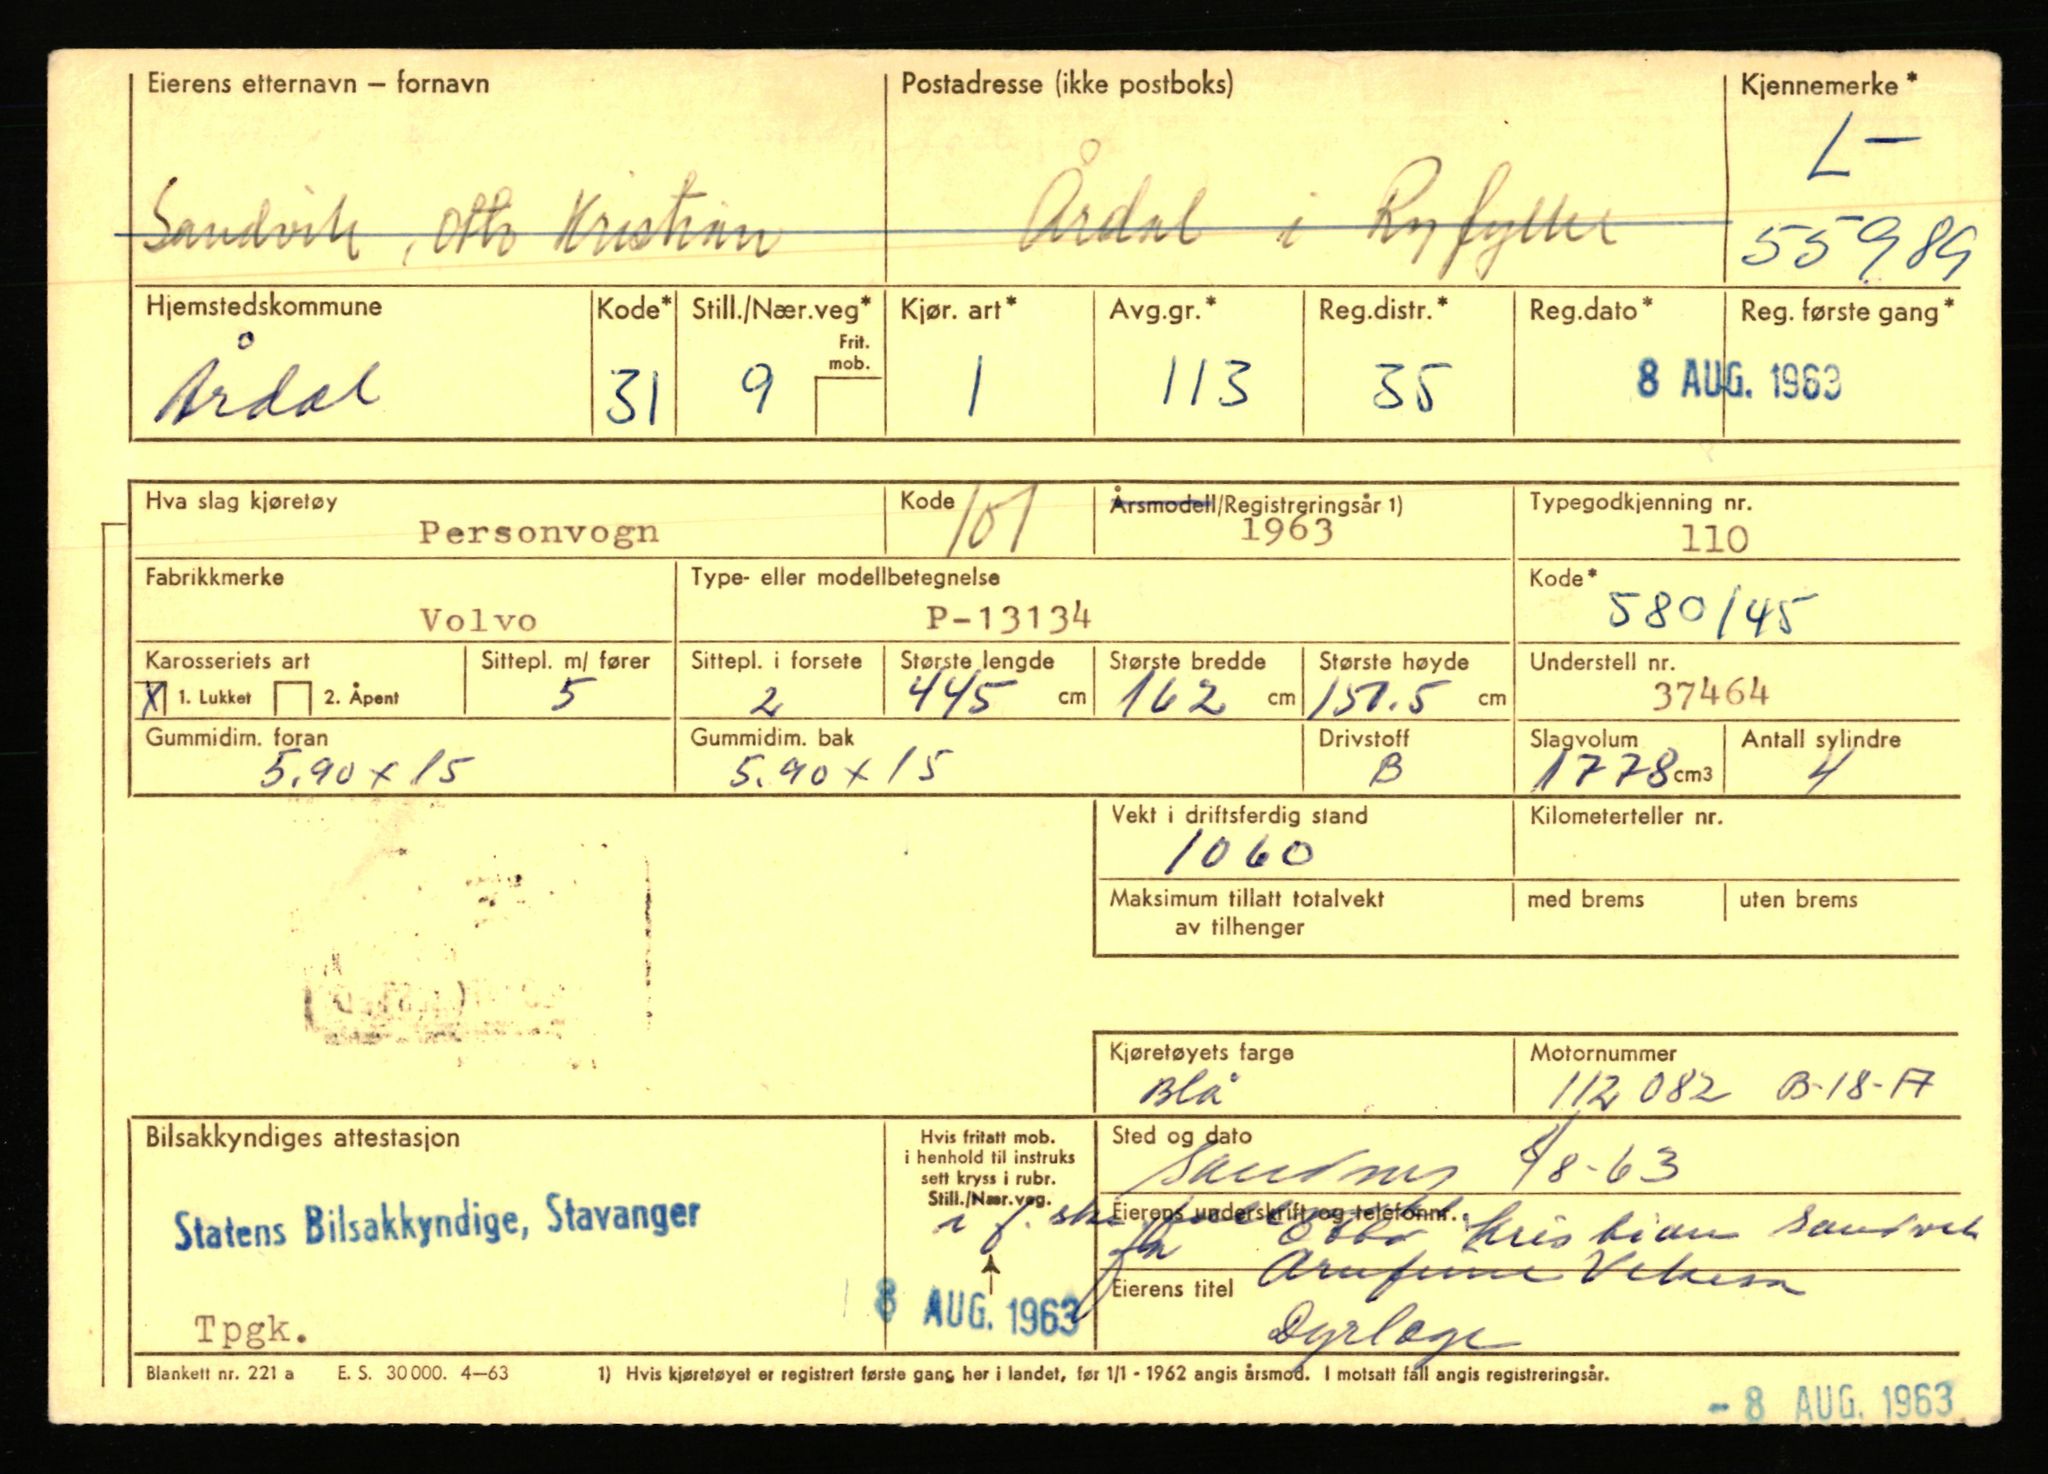 Eierens etternavn – fornavn
Postadresse (ikke postboks)
Kjennemerke*
L-
Sandvik, Otto Kristian
Årdal i Ryfylke
55989
Hjemstedskommune
Kode*
Still./Nær.veg*
Frit. mob.
Kjør. art*
Avg.gr.*
Reg.distr.*
Reg.dato*
Reg. første gang*
Årdal
31
9
1
113
35
8 AUG. 1963
Hva slag kjøretøy
Personvogn
Kode
101
Årsmodell/Registreringsår 1)
1963
Typegodkjenning nr.
110
Fabrikkmerke
Volvo
Type- eller modellbetegnelse
P-13134
Kode*
580145
Karosseriets art
X 1. Lukket
2. Åpent
Sittepl. m/ fører
5
Sittepl. i forsete
2
Største lengde
445 cm
Største bredde
162 cm
Største høyde
151.5 cm
Understell nr.
37464
Gummidim. foran
5.90 x 15
Gummidim. bak
5.90 x 15
Drivstoff
B
Slagvolum
1778 cm3
Antall sylindre
4
Vekt i driftsferdig stand
1060
Kilometerteller nr.
Maksimum tillatt totalvekt
av tilhenger
med brems
uten brems
Kjøretøyets farge
Blå
Motornummer
112082 B-18-A
Bilsakkyndiges attestasjon
Statens Bilsakkyndige, Stavanger
Tpgk.
Hvis fritatt mob.
i henhold til instruks
sett kryss i rubr.
Still./Nær.veg.
8 AUG. 1963
Sted og dato
Sandnes 6/8-63
Eierens underskrift og telefonnr.
Otto Kristian Sandvik
Eierens titel
Dyrlæge
Blankett nr. 221 a E. S. 30 000. 4–63
1) Hvis kjøretøyet er registrert første gang her i landet, før 1/1 - 1962 angis årsmod. I motsatt fall angis registreringsår.
- 8 AUG. 1963